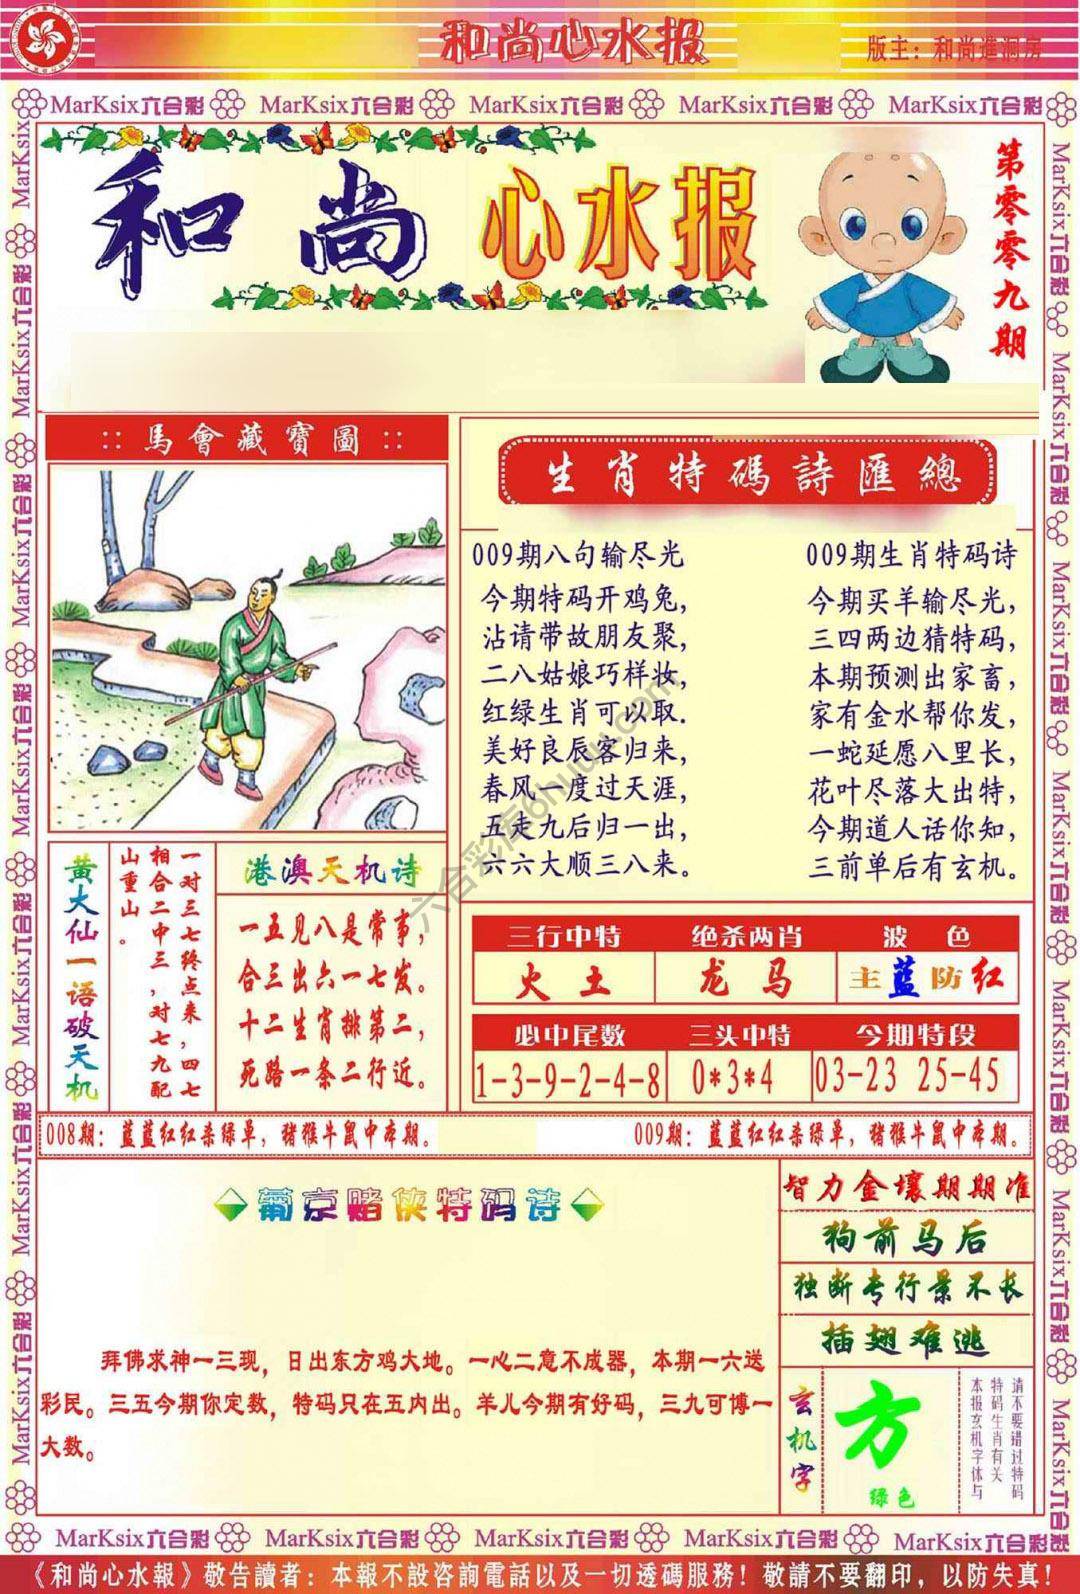 和尚心水报
版主：和尚進洞房
MarKsix六合彩 MarKsix六合彩 MarKsix六合彩 MarKsix六合彩 MarKsix六合彩
和尚心水报
第零零九期
馬會藏寶圖
生肖特碼詩匯總
009期八句输尽光
今期特码开鸡兔，
沾请带故朋友聚，
二八姑娘巧样妆，
红绿生肖可必取.
美好良辰客归来，
春风一度过天涯，
五走九后归一出，
六六大顺三八来。
009期生肖特码诗
今期买羊输尽光，
三四两边猜特码，
本期预测出家畜，
家有金水帮你发，
一蛇延愿八里长，
花叶尽落大出特，
今期道人话你知，
三前单后有玄机。
黄大仙一语破天机
一对三七终点来，四七
相合二中三，对七九配
山重山。
港澳天机诗
一五见八是常事，
合三出六一七发。
十二生肖排第二，
死路一条二行近。
三行中特 绝杀两肖 波色
火土 龙马 主蓝防红
必中尾数 三头中特 今期特段
1-3-9-2-4-8 0*3*4 03-23 25-45
008期：蓝蓝红红杀绿单，猪猴牛鼠中本期。
009期：蓝蓝红红杀绿单，猪猴牛鼠中本期。
葡京赌侠特码诗
拜佛求神一三现，日出东方鸡大地。一心二意不成器，本期一六送
彩民。三五今期你定数，特码只在五内出。羊儿今期有好码，三九可博一
大数。
智力金壤期期准
狗前马后
独断专行景不长
插翅难逃
玄机字
方
绿色
请不要错过特码
特码生肖有关
本报玄机字体与
六合彩库6huuu.com
MarKsix六合彩 MarKsix六合彩 MarKsix六合彩 MarKsix六合彩 MarKsix六合彩
《和尚心水報》敬告讀者：本報不設咨詢電話以及一切透碼服務！敬請不要翻印，以防失真！